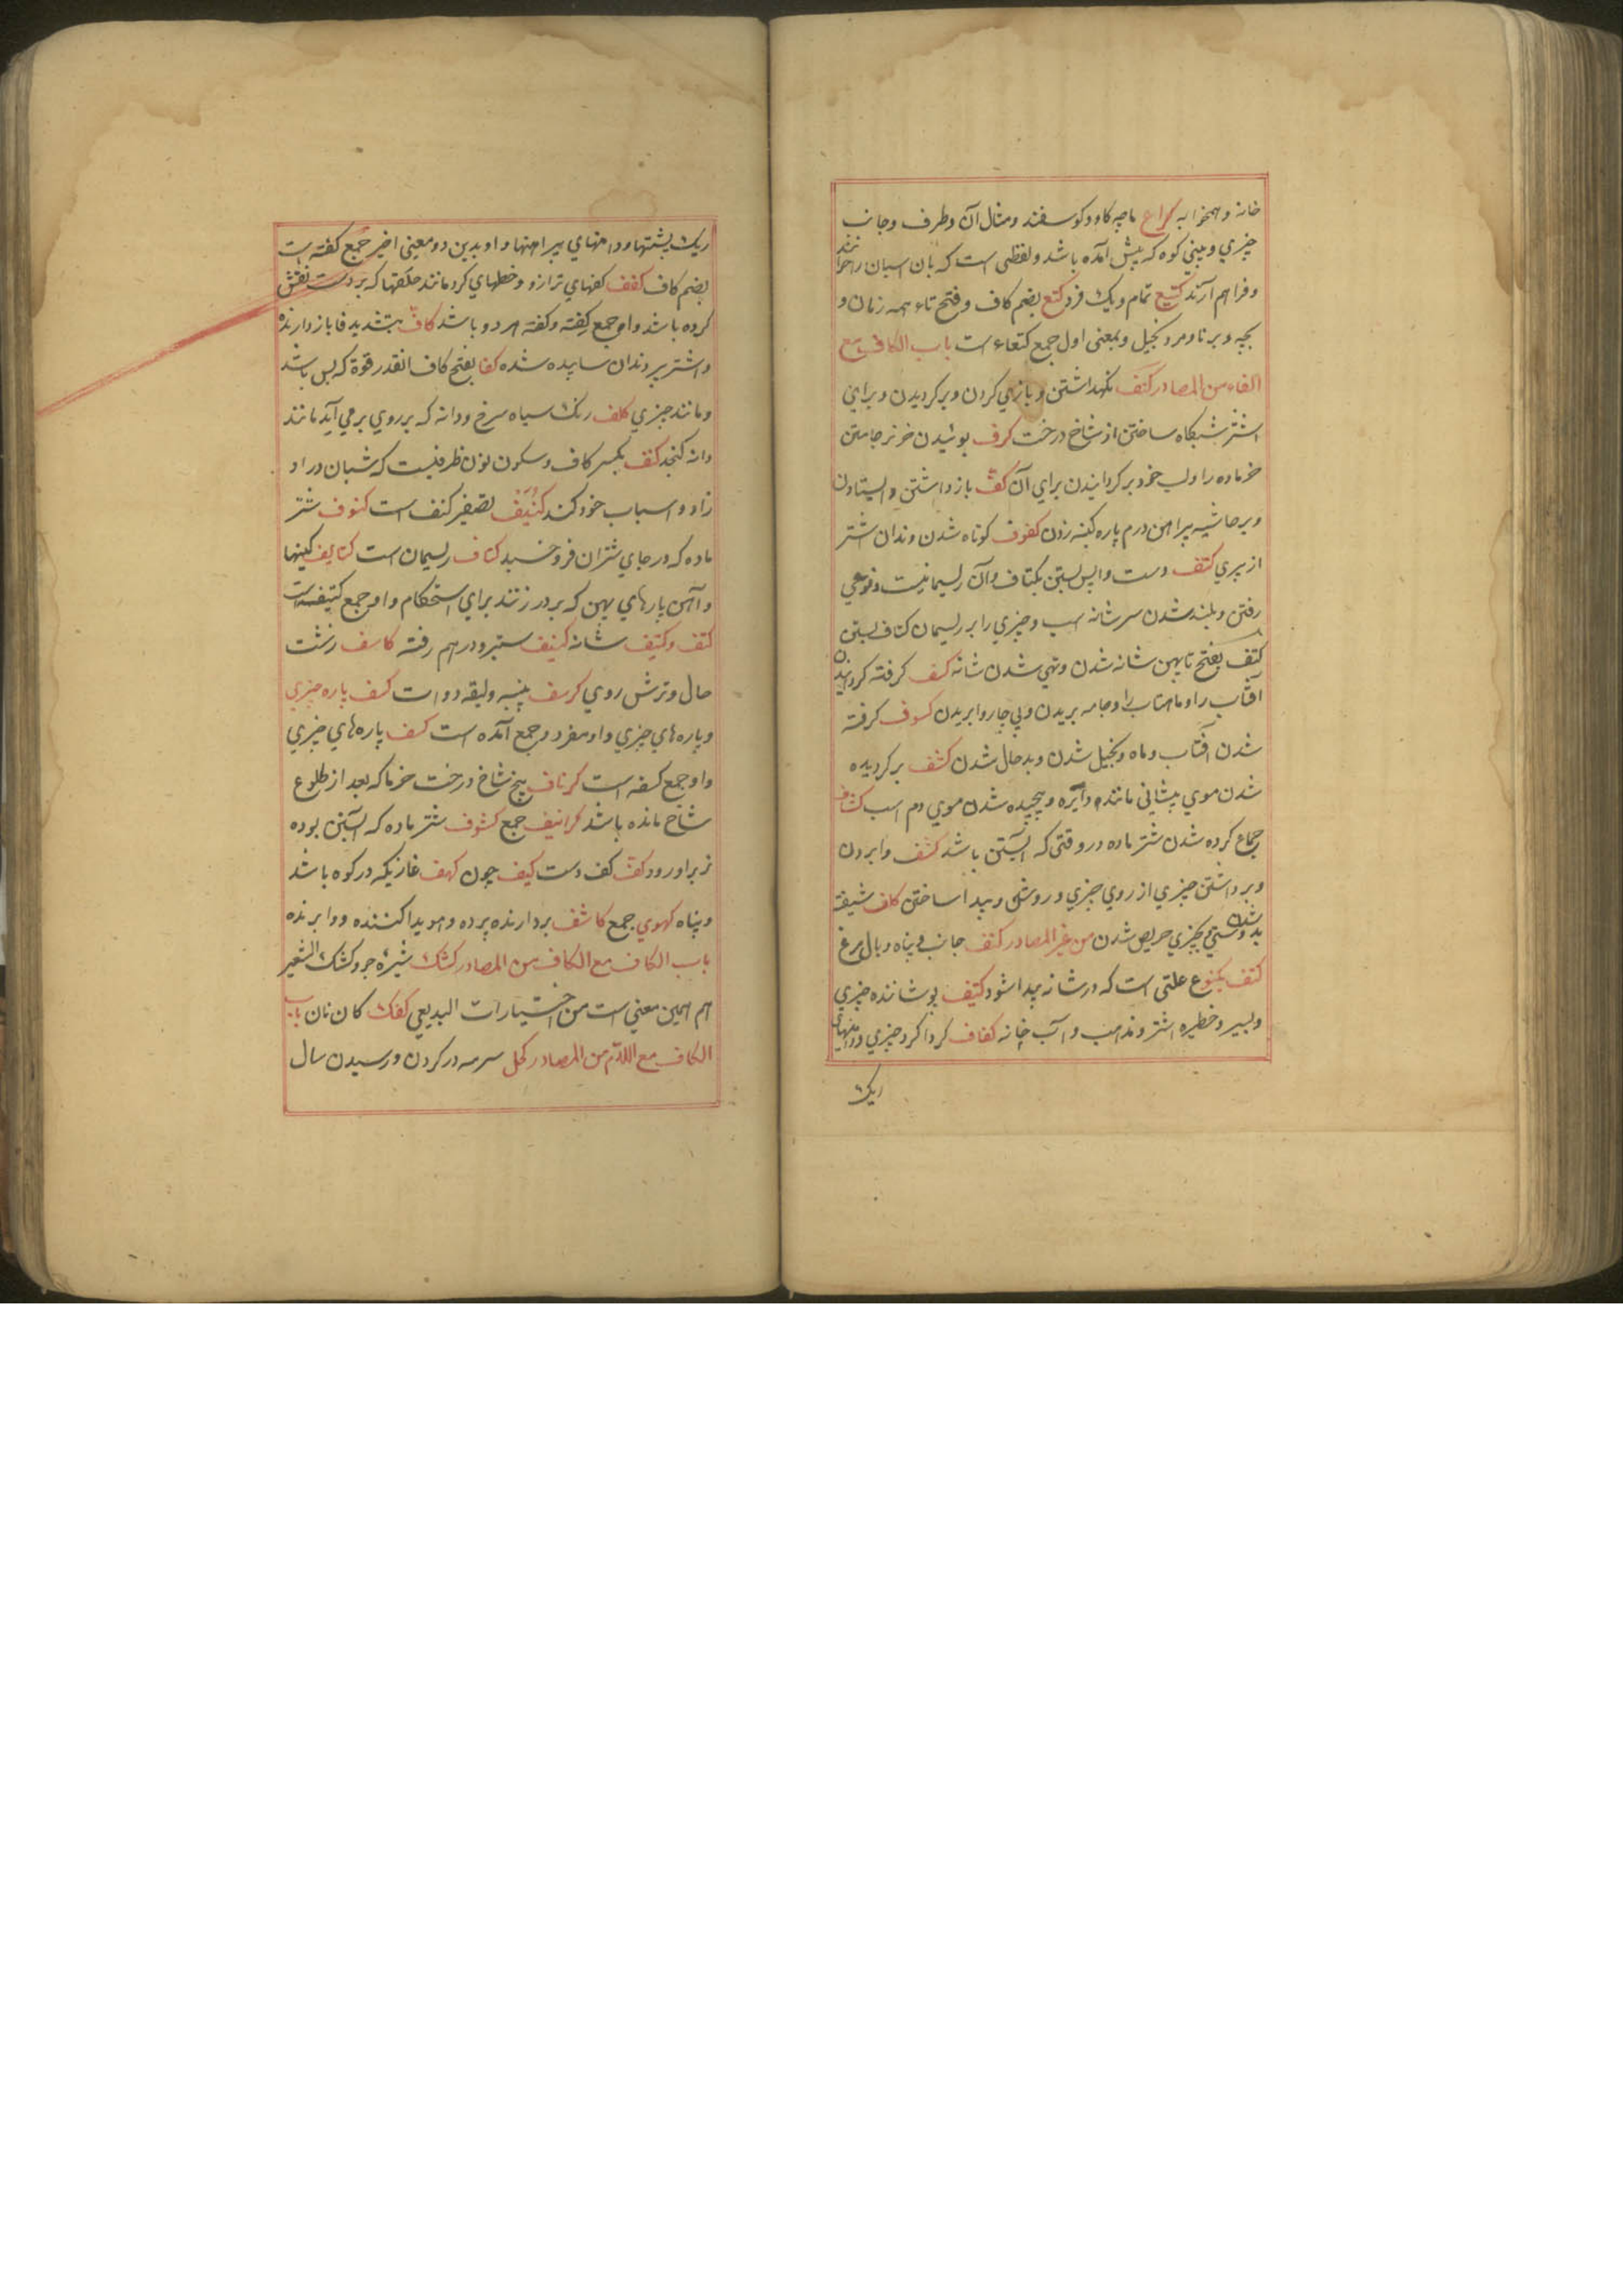 خانه و همخوابه کراع پاچه کاو و کوسفند و مثال آن و طرف و جانب
چیزي و بیني کوه که پیش آمده باشد و لفظی است که بآن اسبان را خوانند
و فراهم آرند کتیع تمام و یک فرد کتع بضم کاف و فتح تاء همه زمان و
بچه و برنا و مرد بخیل و بمعنی اول جمع کتعاء است باب الکاف مع
الفاء من المصادر کنف نکهداشتن و یاري کردن و برکردیدن و براي
اشتر شبکاه ساختن از شاخ درخت کرف بوئیدن خر نر جاي
خر ماده را و لب خود برکردانیدن براي آن کف باز داشتن و ایستادن
و بر حاشیه پیراهن درم پاره کینه زدن کفوف کوتاه شدن دندان اشتر
از پیري کتف دست واپس بستن بکتاف و آن ریسمانیست و نوعي
رفتن و بلند شدن سر شانه اسب و چیزي را بر ریسمان کتاف بستن
کتف بفتح تا پهن شانه شدن و تهي شدن شانه کسف کرفته کردانیدن
آفتاب را و ماهتاب را و جامه بریدن و پي چاروا بریدن کسوف کرفته
شدن آفتاب و ماه و بخیل شدن و بدحال شدن کشف برکردیده
شدن موي پیشاني مانند دایره و پیچیده شدن موي دم اسب کشاف
جماع کرده شدن شتر ماده در وقتی که آبستن باشد کشف وابردن
و برداشتن چیزي از روي چیزي و روشن و پیدا ساختن کلف شیفته
شدن بدوستي و بچیزي حریص شدن من غیر المصادر کنف جانب و پناه و بال مرغ
کتف یکنوع علتی است که در شانه پیدا شود کنیف پوشاننده چیزي
و سپر و خطیره اشتر و مذهب و آب خانه کفاف کرداکرد چیزي و دامنهاي
ریک
ریک پشتها و دامنهاي پیراهنها و او بدین دو معني اخیر جمع کفة است
بضم کاف کفف کفهاي ترازو و خطهاي کرد مانند حلقها که بر دست نقش
کرده باشد و او جمع کفته و کفته هر دو باشد کافّ بتشدید فا باز دارنده
و اشتر پیر دندان ساییده شده کفا بفتح کاف انقدر قوة که بس باشد
و مانند چیزي کلف رنک سیاه سرخ و دانه که بر روي بر مي آید مانند
دانه کنجد کنف بکسر کاف و سکون نون ظرفیست که شبان در او
زاد و اسباب خود کند کنیف تصغیر کنف است کنوف شتر
ماده که در جاي شتران فرو خسبد کتاف ریسمان است کتایف کینها
و آهن پارهاي پهن که بر در زنند براي استحکام و او جمع کتیفه است
کتف و کتیف شانه کثیف ستبر و در هم رفته کاسف زشت
حال و ترش روي کرسف پنبه و لیقه دوات کسف پاره چیزي
و پاره هاي چیزي و او مفرد و جمع آمده است کسف پاره هاي چیزي
و او جمع کسفه است کرناف بیخ شاخ درخت خرما که بعد از طلوع
شاخ مانده باشد کرانیف جمع کشوف شتر ماده که آبستن بوده
نر بر او رود کفّ کف دست کیف چون کهف غاریکه در کوه باشد
و پناه کهوي جمع کاشف بردارنده پرده و هویدا کننده و وابرنده
باب الکاف مع الکاف من المصادر کشک شیرۀ جو و کشک الشعیر
هم همین معني است من اختیارات البدیعي کفک کان نان باب
الکاف مع اللام من المصادر کحل سرمه در کردن و رسیدن سال